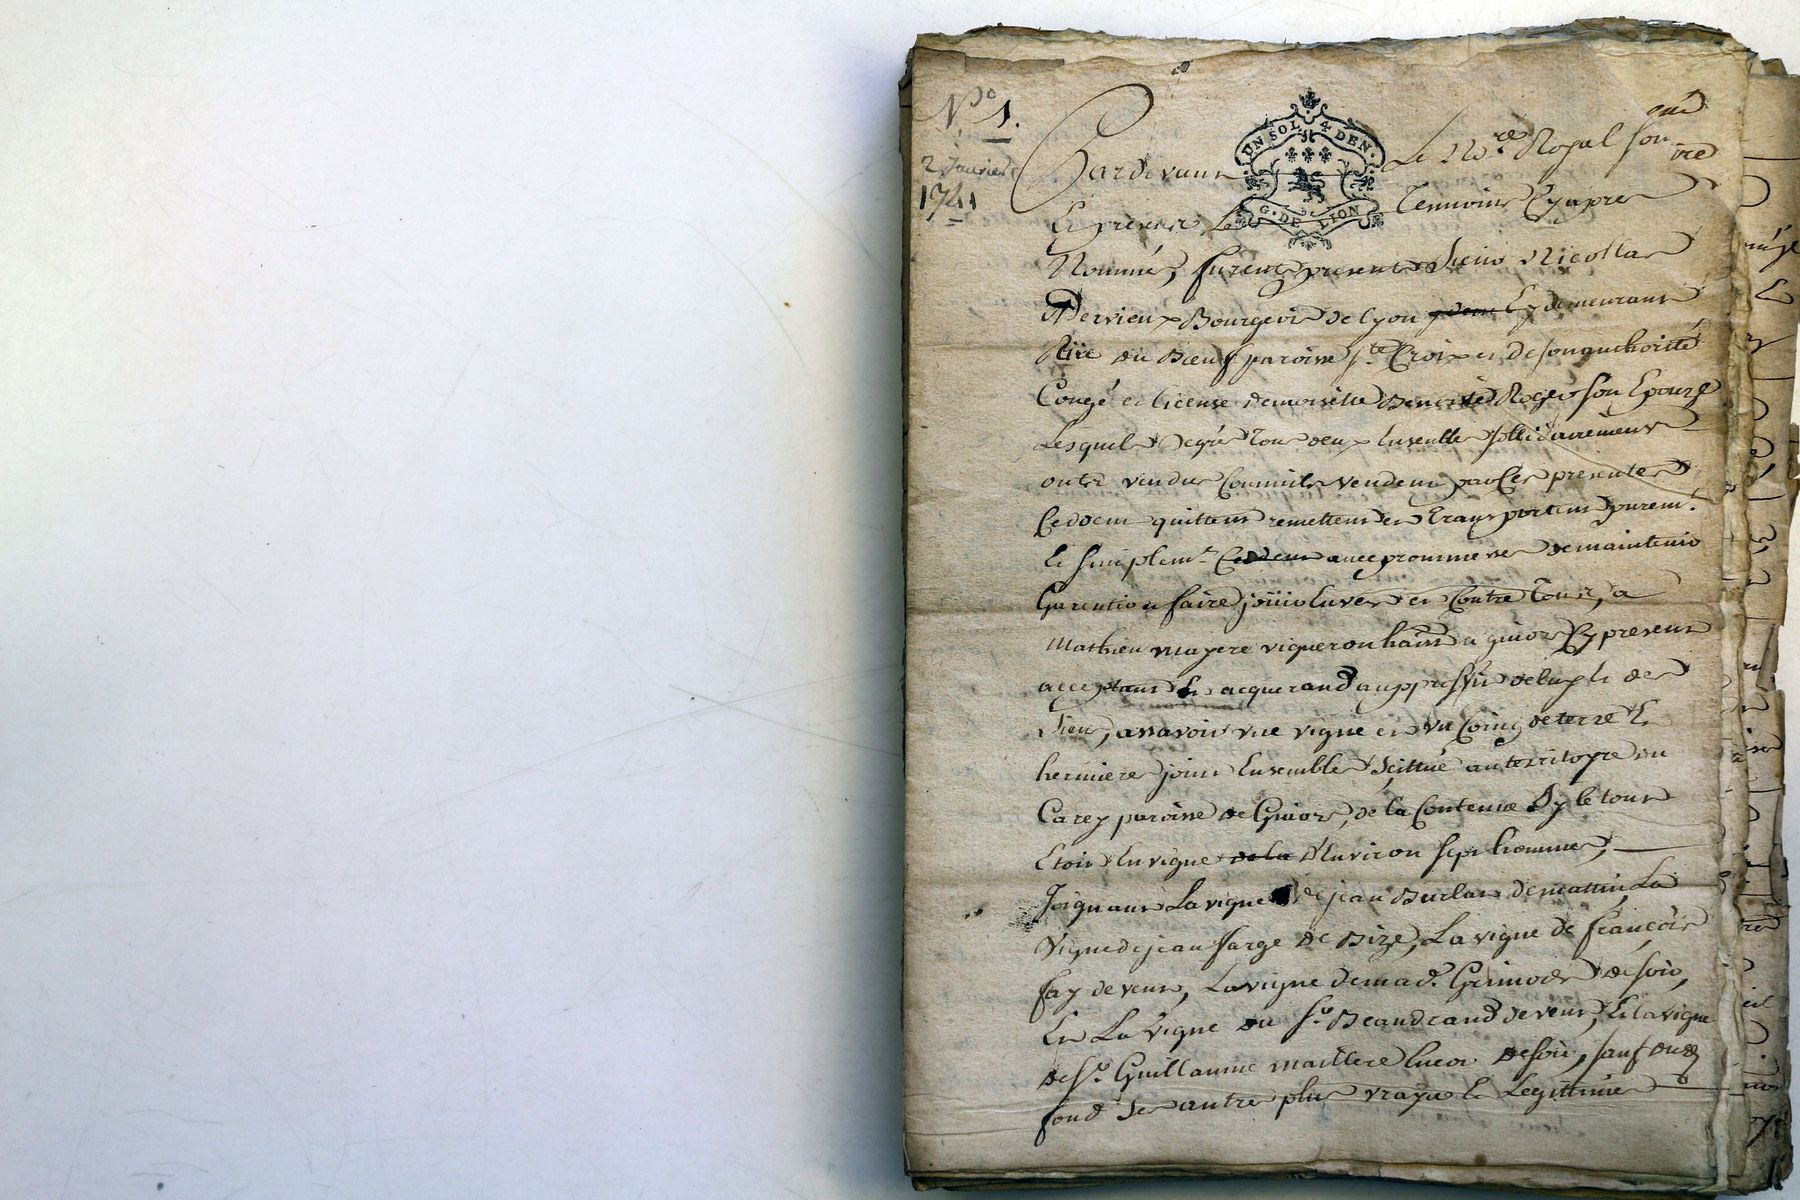 N.º 1.
2 Janvier
1741
UN SOL 4 DEN.
G. DE LION
Pardevant Le No.re Royal sou
Et presence Les Temoins Cyapres
Nommés, furent presents Sieur Nicollas
Dervieux Bourgeois de Lyon y demeurant
Rüe du Boeuf paroisse S.te Croix et de son authorité
Congé et license demoiselle Benoite Roger son Epouze
Lesquels de gré tous deux Ensemble sollidairement
ont vendus Comme ils vendent par Ces presentes
Ceddent quittent remettent et transportent purem.t
Et simplem.t Ceddent avec promesses de maintenir
Garentir et faire joüir Envers et Contre Tous, a
Mathieu mayere vigneron hab.nt a givors Cy present
acceptant Et acquerand au proffit de luy Et des
Siens, assavoir une vigne et un Coing de terre Et
hermiere joint Ensemble Scittué au territoyre du
Carey paroisse de Givors, de la Contenue Sy le tout
Etoit En vigne de la d'Environ sept hommes,
Joignant La vigne de jean Burlat de mattin, La
vigne de jean farge de Bize, La vigne de françois
fay de vent, La vigne de mad.e Grimod de soir,
Et La vigne du S.r Beaudrand de vent, Et la vigne
de S.r Guillaume maillere Encor de soir, sauf dud
fond Ses autres plus vrayes Et Legittimes